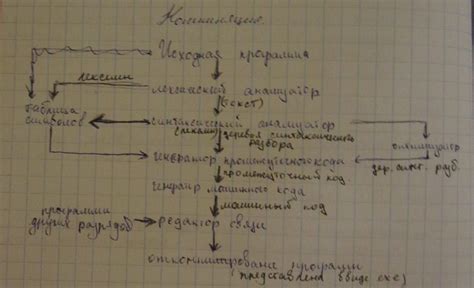 Компиляция
Исходная программа
лексемы
лексический анализатор
(текст)
таблица
символов
синтаксический анализатор
(лексемы) деревья синтаксического
разбора
оптимизатор
генератор промежуточного кода
дер. синт. разб.
промежуточный код
генератор машинного кода
машинный код
программы
других разрядов
редактор связи
откомпилирована программа
представлена ввиде exe)